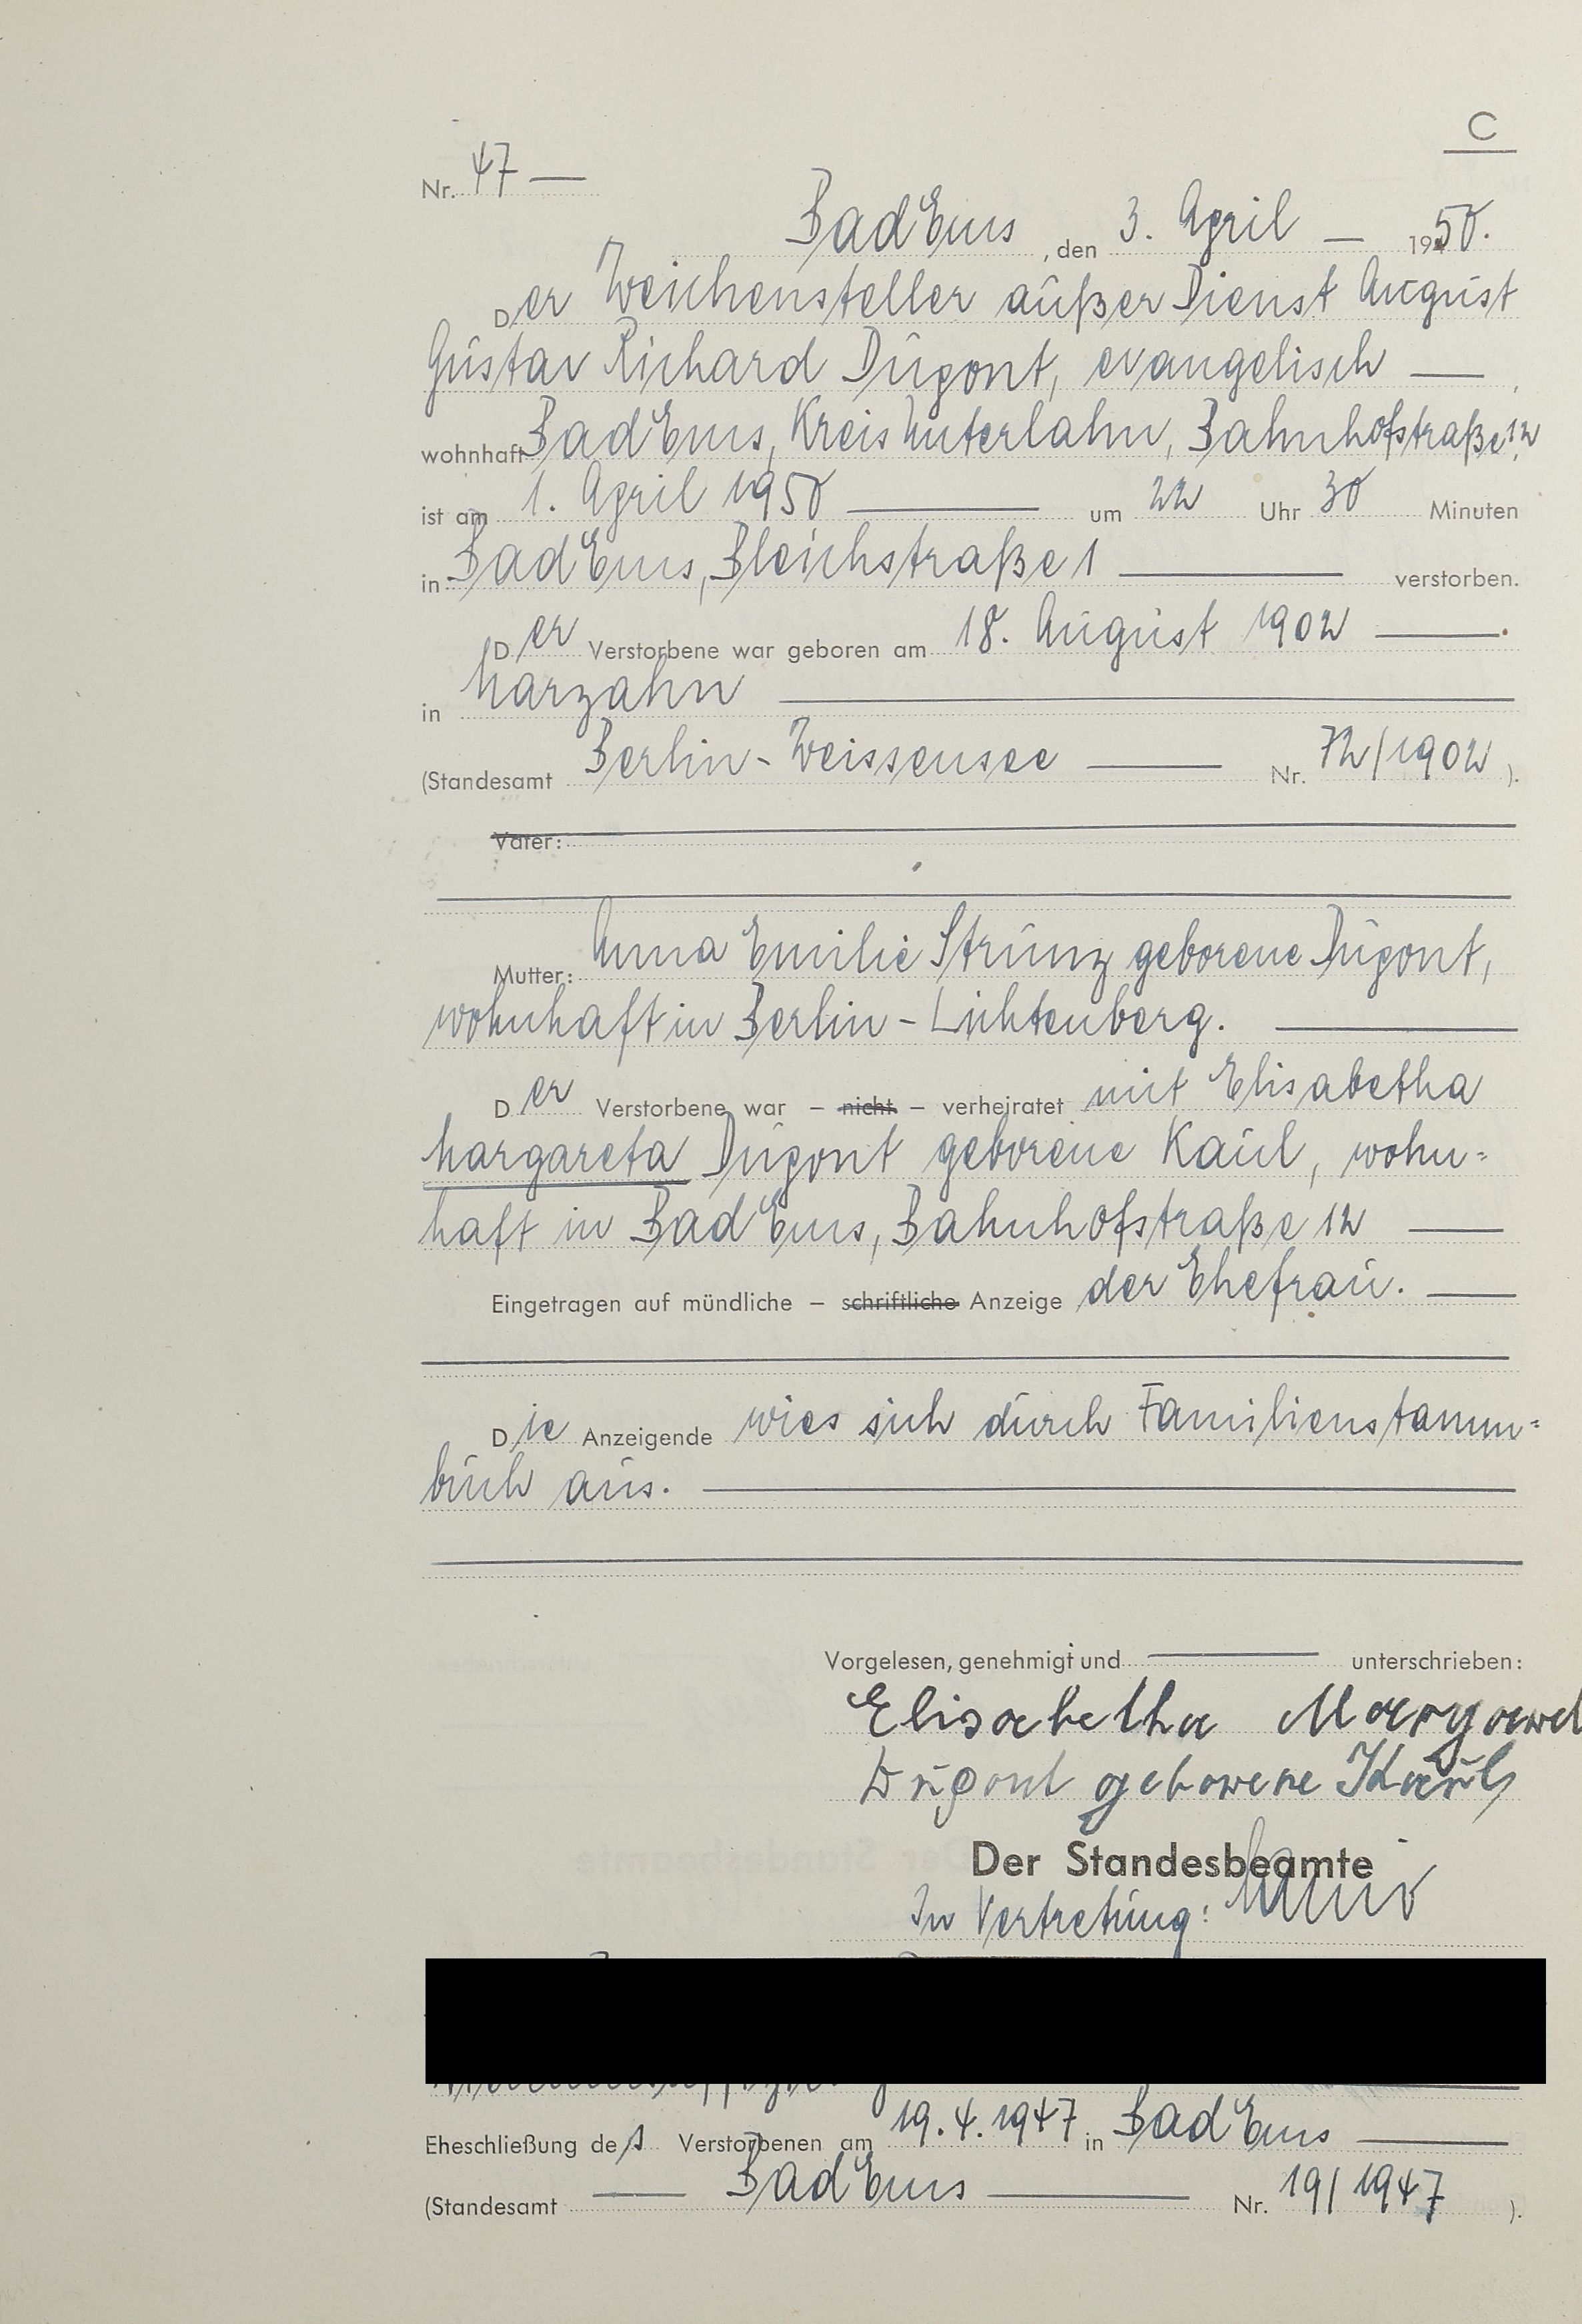 C
Nr. 47 —
Bad Ems, den 3. April — 1950.
Der Weichensteller außer Dienst August
Gustav Richard Dupont, evangelisch — ,
wohnhaft Bad Ems, Kreis Unterlahn, Bahnhofstraße 12,
ist am 1. April 1950 — um 22 Uhr 30 Minuten
in Bad Ems, Bleichstraße 1 — verstorben.
Der Verstorbene war geboren am 18. August 1902 —
in Marzahn —
(Standesamt Berlin-Weissensee — Nr. 72/1902 ).
Vater:
Mutter: Anna Emilie Strunz geborene Dupont,
wohnhaft in Berlin-Lichtenberg. —
Der Verstorbene war – nicht – verheiratet mit Elisabetha
Margareta Dupont geborene Kaul, wohn=
haft in Bad Ems, Bahnhofstraße 12 —
Eingetragen auf mündliche – schriftliche Anzeige der Ehefrau. —
Die Anzeigende wies sich durch Familienstamm=
buch aus. —
Vorgelesen, genehmigt und — unterschrieben:
Elisabetha
Dupont geborene Kaul
Der Standesbeamte
In Vertretung:
Eheschließung des Verstorbenen am 19.4.1947 in Bad Ems —
(Standesamt — Bad Ems — Nr. 19/1947 ).